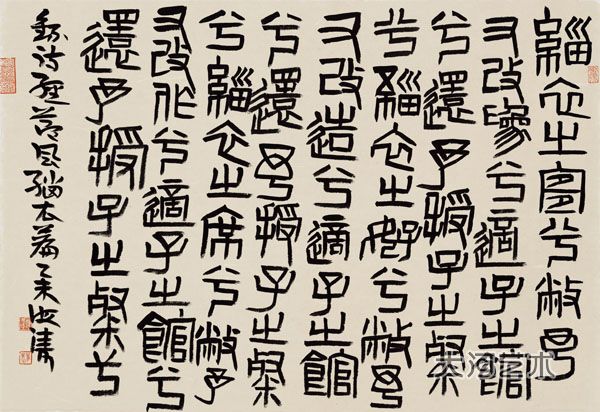 緇衣之宜兮敝予
又改為兮適子之館
兮還予授子之粲
兮緇衣之好兮敝予
又改造兮適子之館
兮還予授子之粲
兮緇衣之席兮敝予
又改作兮適子之館兮
還予授子之粲兮
錄詩經鄭風緇衣篇乙未
大河艺术